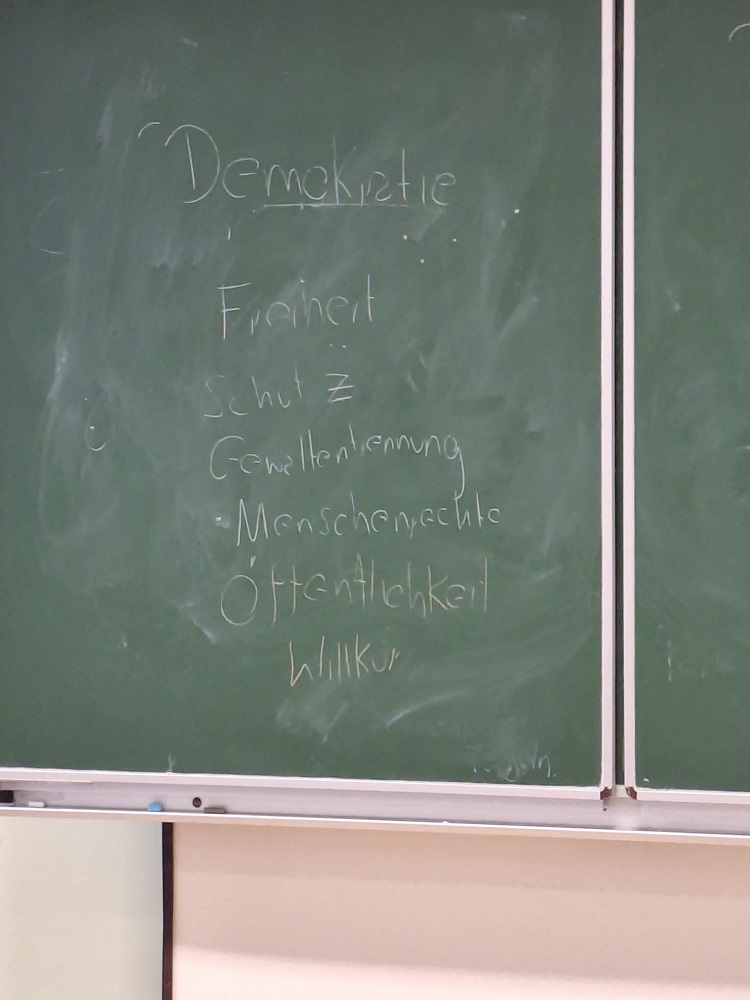 Demokratie
Freiheit
Schutz
Gewaltentrennung
Menschenrechte
Öffentlichkeit
Willkür